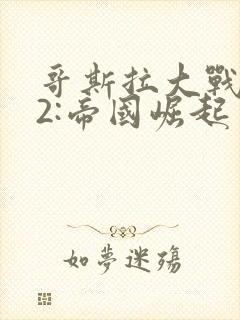 哥斯拉大戰
2:帝國崛起
如夢迷殤